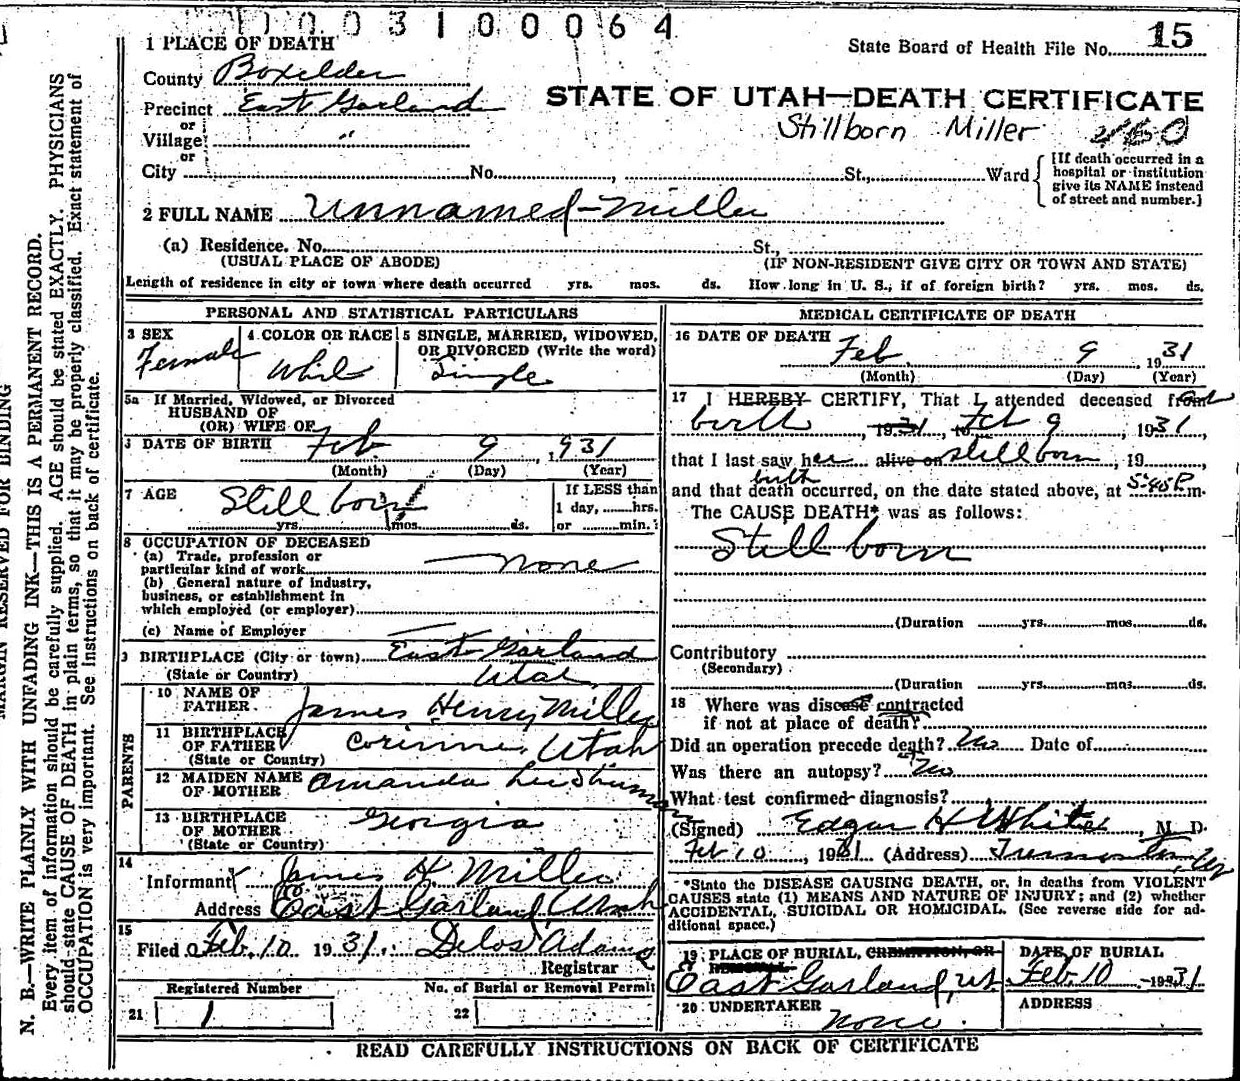 003100064
15
State Board of Health File No.
1 PLACE OF DEATH
County Boxelder
Precinct East Garland
or
Village "
or
City No. , St., Ward
STATE OF UTAH—DEATH CERTIFICATE
Stillborn Miller
[If death occurred in a
hospital or institution
give its NAME instead
of street and number.]
2 FULL NAME Unnamed-Miller
(a) Residence. No. St.,
(USUAL PLACE OF ABODE) (IF NON-RESIDENT GIVE CITY OR TOWN AND STATE)
Length of residence in city or town where death occurred yrs. mos. ds. How long in U. S., if of foreign birth? yrs. mos. ds.
PERSONAL AND STATISTICAL PARTICULARS
3 SEX 4 COLOR OR RACE 5 SINGLE, MARRIED, WIDOWED,
OR DIVORCED (Write the word)
Female White Single
5a If Married, Widowed, or Divorced
HUSBAND OF
(OR) WIFE OF
DATE OF BIRTH Feb 9 1931
(Month) (Day) (Year)
7 AGE Still born
If LESS than
1 day, hrs.
or min.
yrs. mos. ds.
8 OCCUPATION OF DECEASED
(a) Trade, profession or
particular kind of work none
(b) General nature of industry,
business, or establishment in
which employed (or employer)
(c) Name of Employer
9 BIRTHPLACE (City or town) East Garland
(State or Country) Utah
PARENTS
10 NAME OF
FATHER James Henry Miller
11 BIRTHPLACE
OF FATHER Corinne, Utah
(State or Country)
12 MAIDEN NAME
OF MOTHER Amanda
13 BIRTHPLACE
OF MOTHER Georgia
(State or Country)
14
Informant James H Miller
Address East Garland Utah
15
Filed Feb. 10 1931. Delos Adams
Registrar
Registered Number No. of Burial or Removal Permit
21 1 22
MEDICAL CERTIFICATE OF DEATH
16 DATE OF DEATH
Feb 9, 1931
(Month) (Day) (Year)
17 I HEREBY CERTIFY, That I attended deceased from
birth, 1931, to Feb 9, 1931,
that I last saw her alive on still born, 19
birth
and that death occurred, on the date stated above, at 5:45 P m.
The CAUSE DEATH* was as follows:
Still born
(Duration yrs. mos. ds.
Contributory
(Secondary)
(Duration yrs. mos. ds.
18 Where was disease contracted
if not at place of death?
Did an operation precede death? No Date of
Was there an autopsy? No
What test confirmed diagnosis?
(Signed) Edgar H White, M. D.
Feb 10, 1931 (Address) Tremonton, Ut
*State the DISEASE CAUSING DEATH, or, in deaths from VIOLENT
CAUSES state (1) MEANS AND NATURE OF INJURY; and (2) whether
ACCIDENTAL, SUICIDAL OR HOMICIDAL. (See reverse side for ad-
ditional space.)
19 PLACE OF BURIAL, CREMATION, OR
REMOVAL
East Garland, Ut.
DATE OF BURIAL
Feb. 10 -1931
20 UNDERTAKER ADDRESS
none.
READ CAREFULLY INSTRUCTIONS ON BACK OF CERTIFICATE
MARGIN RESERVED FOR BINDING
N. B.—WRITE PLAINLY WITH UNFADING INK—THIS IS A PERMANENT RECORD.
Every item of information should be carefully supplied. AGE should be stated EXACTLY. PHYSICIANS
should state CAUSE OF DEATH in plain terms, so that it may be properly classified. Exact statement of
OCCUPATION is very important. See Instructions on back of certificate.